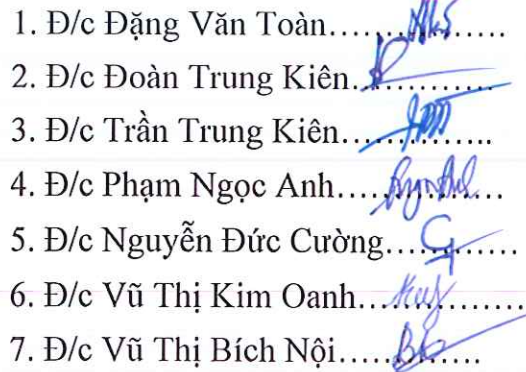 1. Đ/c Đặng Văn Toàn..................
2. Đ/c Đoàn Trung Kiên..............
3. Đ/c Trần Trung Kiên...............
4. Đ/c Phạm Ngọc Anh.................
5. Đ/c Nguyễn Đức Cường............
6. Đ/c Vũ Thị Kim Oanh................
7. Đ/c Vũ Thị Bích Nội...............